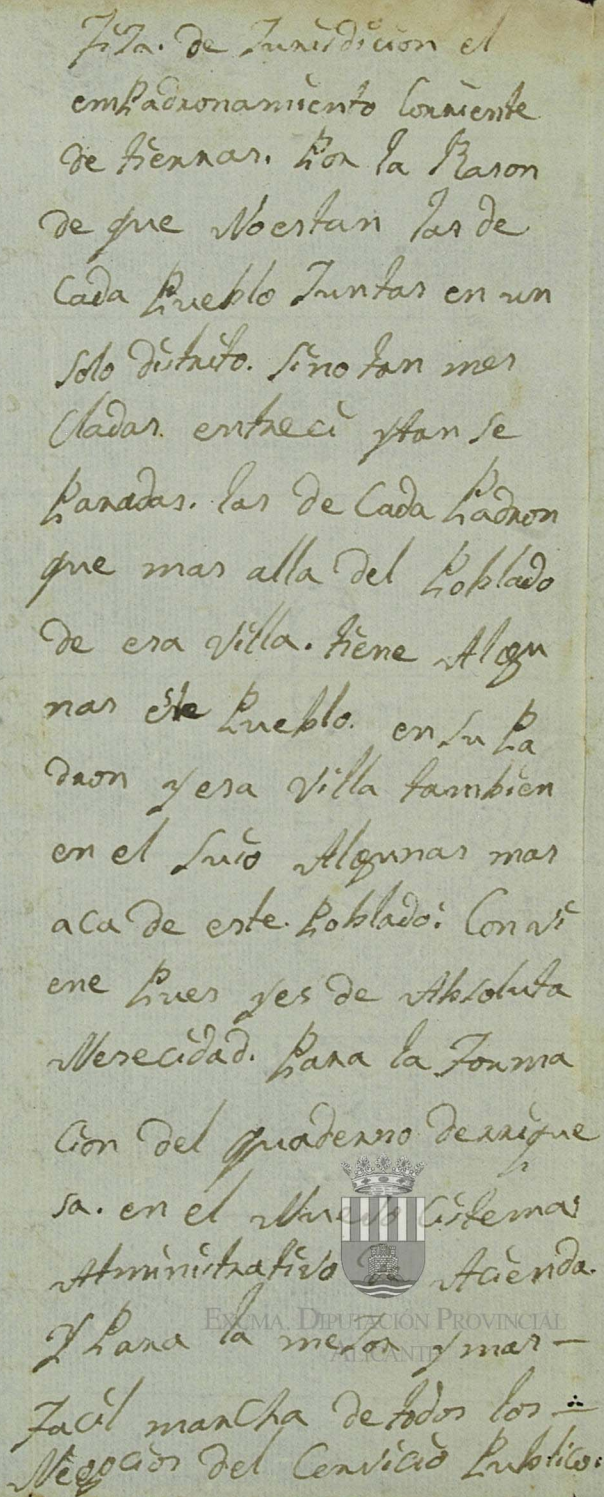 fita. de Jurisdicion el
empadronamiento Corriente
de tierras. Por la Rason
de que No estan las de
Cada Pueblo Juntas en un
solo distrito. sino tan mes
cladas. entreci y tan se
paradas. las de Cada Padron
que mas alla del Poblado
de esa Villa. tiene Algu
nas este Pueblo. en su Pa
dron y esa Villa tambien
en el suio Algunas mas
aca de este. Poblado: Convi
ene Pues yes de Absoluta
Nesecidad. Para la Forma
cion del quaderno derrique
sa. en el Nuevo Cistema
Atministrativo de Acienda.
Y Para la mejor y mas —
facil marcha de todos los —
Negocios del Cervicio Publico.
EXCMA. DIPUTACIÓN PROVINCIAL
ALICANTE